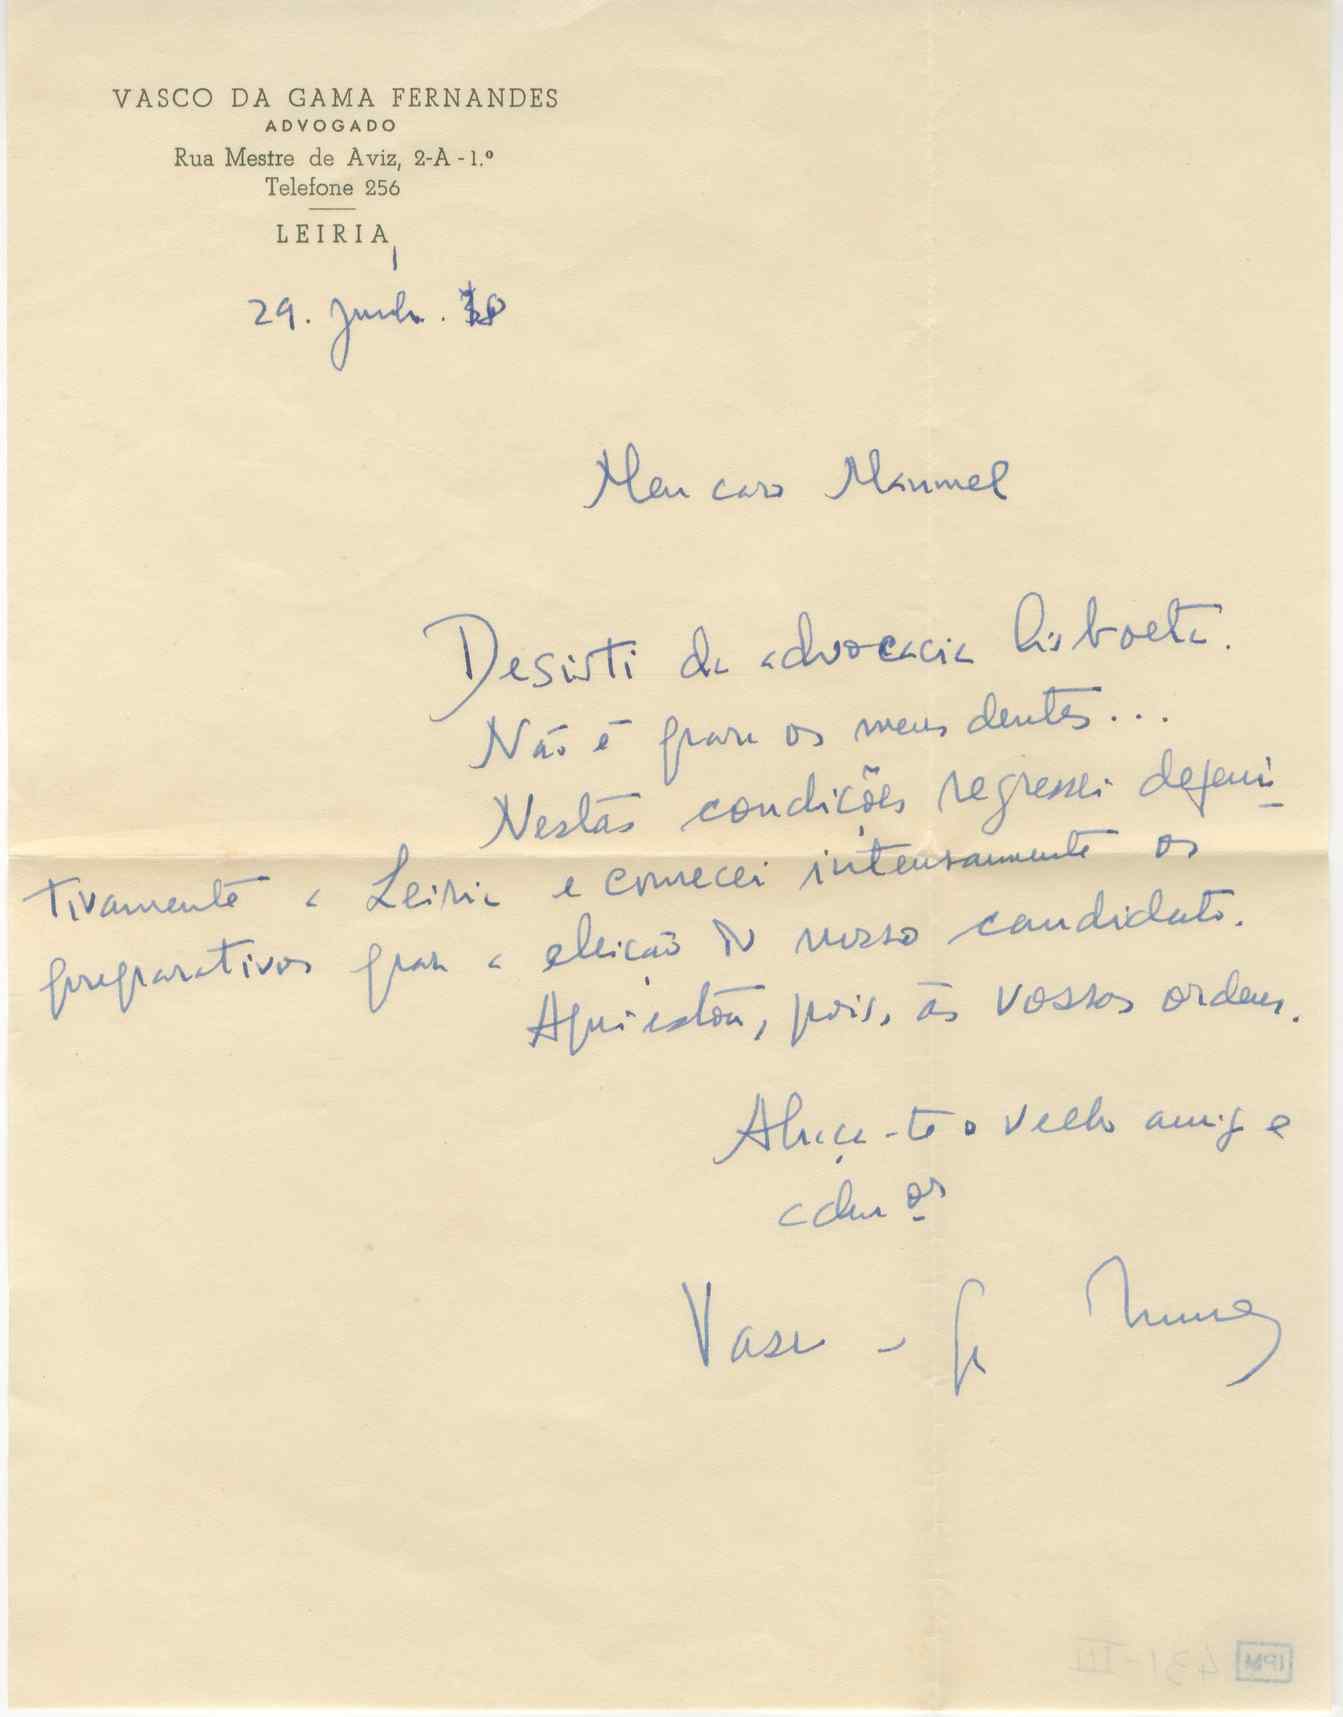 VASCO DA GAMA FERNANDES
ADVOGADO
Rua Mestre de Aviz, 2-A - 1.º
Telefone 256
LEIRIA,
29. Junho.
Meu caro Manuel
Desisti da advocacia lisboeta.
Não é para os meus dentes...
Nestas condições regressei defeni-
tivamente a Leiria e comecei intensamente os
preparativos para a eleição do nosso candidato.
Aqui estou, pois, às vossas ordens.
Abraça-te o velho amigo e
Vasco da Gama Fernandes
IPM 431-III